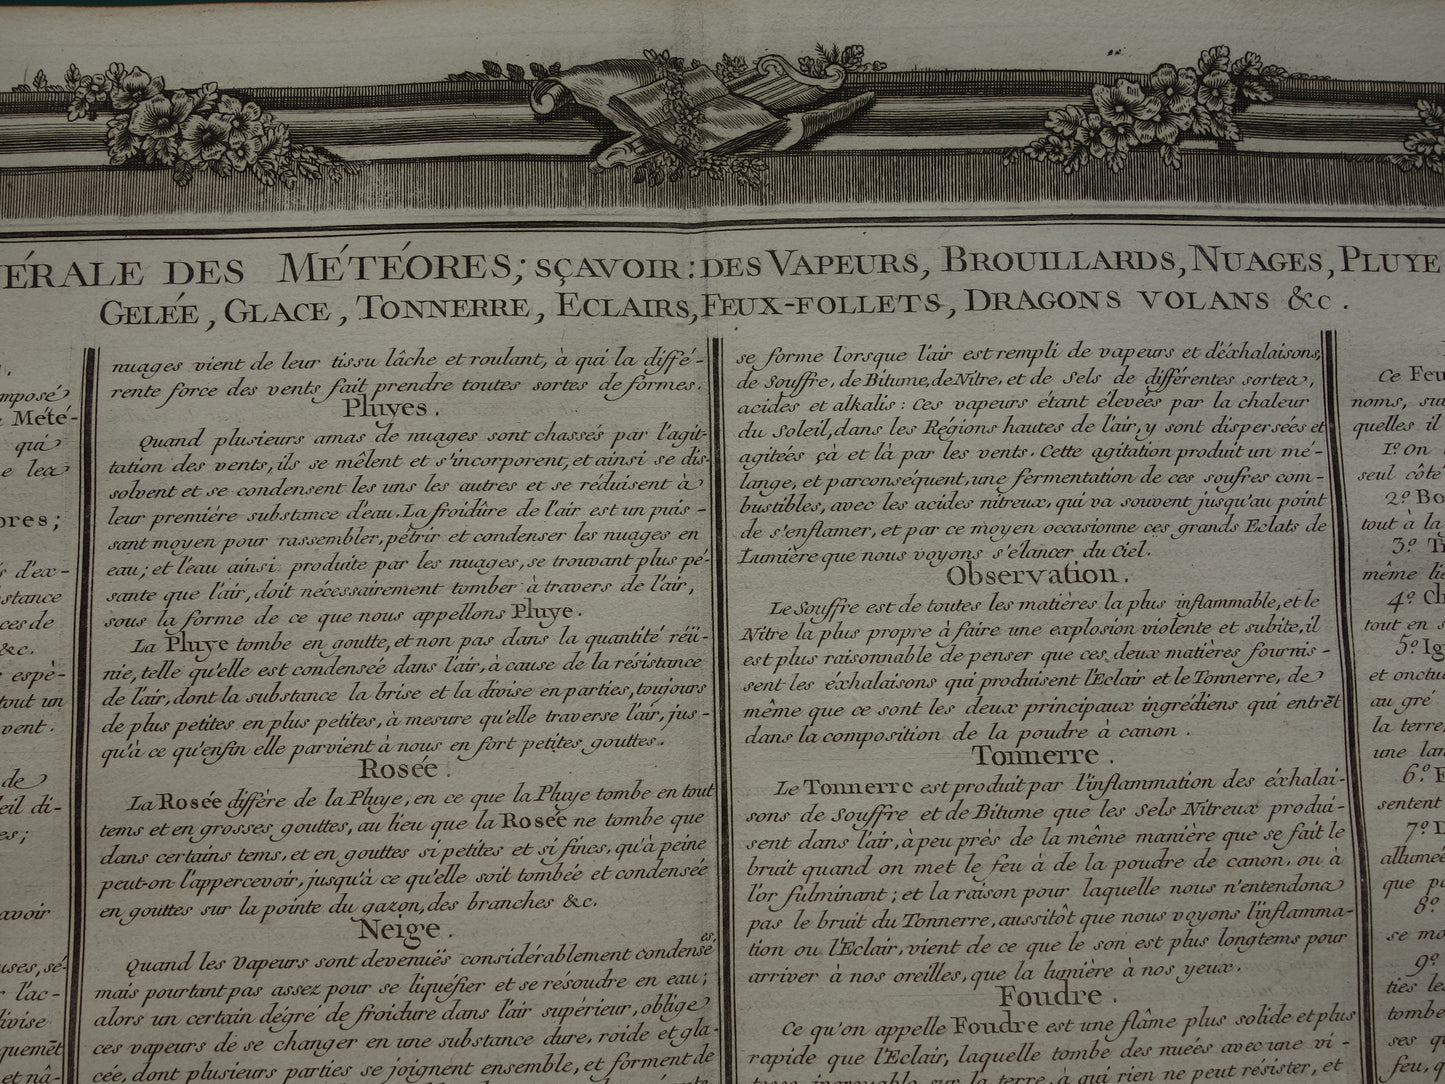 NÉRALE DES MÉTÉORES; SÇAVOIR: DES VAPEURS, BROUILLARDS, NUAGES, PLUYE
GELÉE, GLACE, TONNERRE, ECLAIRS, FEUX-FOLLETS, DRAGONS VOLANS &c.
mposé
Mété-
qui
e les
ores;
s d'ex-
stance
ces de
&c.
espè-
tout un
vent.
de
leil di-
es;
avoir
uses, sé-
r l'ac-
divise
quemēt
et nâ-
nuages vient de leur tissu lâche et roulant, à qui la diffé-
rente force des vents fait prendre toutes sortes de formes.
Pluyes.
Quand plusieurs amas de nuages sont chassés par l'agit-
tation des vents, ils se mêlent et s'incorporent, et ainsi se dis-
solvent et se condensent les uns les autres et se réduisent à
leur premiére substance d'eau. La froidûre de l'air est un puis-
sant moyen pour rassembler, pétrir et condenser les nuages en
eau; et l'eau ainsi produite par les nuages, se trouvant plus pé-
sante que l'air, doit nécessairement tomber à travers de l'air,
sous la forme de ce que nous appellons Pluye.
La Pluye tombe en goutte, et non pas dans la quantité réü-
nie, telle qu'elle est condenseé dans l'air, à cause de la résistance
de l'air, dont la substance la brise et la divise en parties, toujours
de plus petites en plus petites, à mesure qu'elle traverse l'air, jus-
qu'à ce qu'enfin elle parvient à nous en fort petites gouttes.
Rosée.
La Rosée différe de la Pluye, en ce que la Pluye tombe en tout
tems et en grosses gouttes, au lieu que la Rosée ne tombe que
dans certains tems, et en gouttes si petites et si fines, qu'à peine
peut-on l'appercevoir, jusqu'à ce qu'elle soit tombée et condensée
en gouttes sur la pointe du gazon, des branches &c.
Neige.
Quand les Vapeurs sont devenuës considérablement condensées,
mais pourtant pas assez pour se liquéfier et se résoudre en eau;
alors un certain degré de froidure dans l'air supérieur, oblige
ces vapeurs de se changer en une substance dure, roide et gla-
cée, dont plusieurs parties se joignent ensemble, et forment de
se forme lorsque l'air est rempli de vapeurs et d'éxhalaisons,
de Souffre, de Bitume, de Nitre, et de Sels de différentes sortes,
acides et alkalis: Ces vapeurs étant élevées par la chaleur
du Soleil, dans les Régions hautes de l'air, y sont dispersées et
agitées çà et là par les vents. Cette agitation produit un mé-
lange, et parconséquent, une fermentation de ces soufres com-
bustibles, avec les acides nitreux, qui va souvent jusqu'au point
de s'enflamer, et par ce moyen occasionne ces grands Eclats de
Lumière que nous voyons s'élancer du Ciel.
Observation.
Le Souffre est de toutes les matières la plus inflammable, et le
Nitre la plus propre à faire une explosion violente et subite, il
est plus raisonnable de penser que ces deux matières fournis-
sent les éxhalaisons qui produisent l'Eclair et le Tonnerre, de
même que ce sont les deux principaux ingrédiens qui entrēt
dans la composition de la poudre à canon.
Tonnerre.
Le Tonnerre est produit par l'inflammation des éxhalai-
sons de Souffre et de Bitume que les Sels Nitreux produi-
sent dans l'air, à peu près de la même manière que se fait le
bruit quand on met le feu à de la poudre de canon, ou à
l'or fulminant; et la raison pour laquelle nous n'entendons
pas le bruit du Tonnerre, aussitôt que nous voyons l'inflamma-
tion ou l'Eclair, vient de ce que le son est plus longtems pour
arriver à nos oreilles, que la lumière à nos yeux.
Foudre.
Ce qu'on appelle Foudre est une flâme plus solide et plus
rapide que l'Eclair, laquelle tombe des nuées avec une vi-
tesse incroyable sur la terre, à qui rien ne peut résister, et
Ce Feu
noms, sui
quelles il
1º. On
seul côté
2º. Bo
tout à la
3º. Tr
même li
4º. Ch
tout en
5º. Ig
et onctu
au gré
la terre,
une la
6º. F
sentent
7º. D
allumée
que p
8º.
se mo
9º.
ties le
tombe
ses q
feu, q